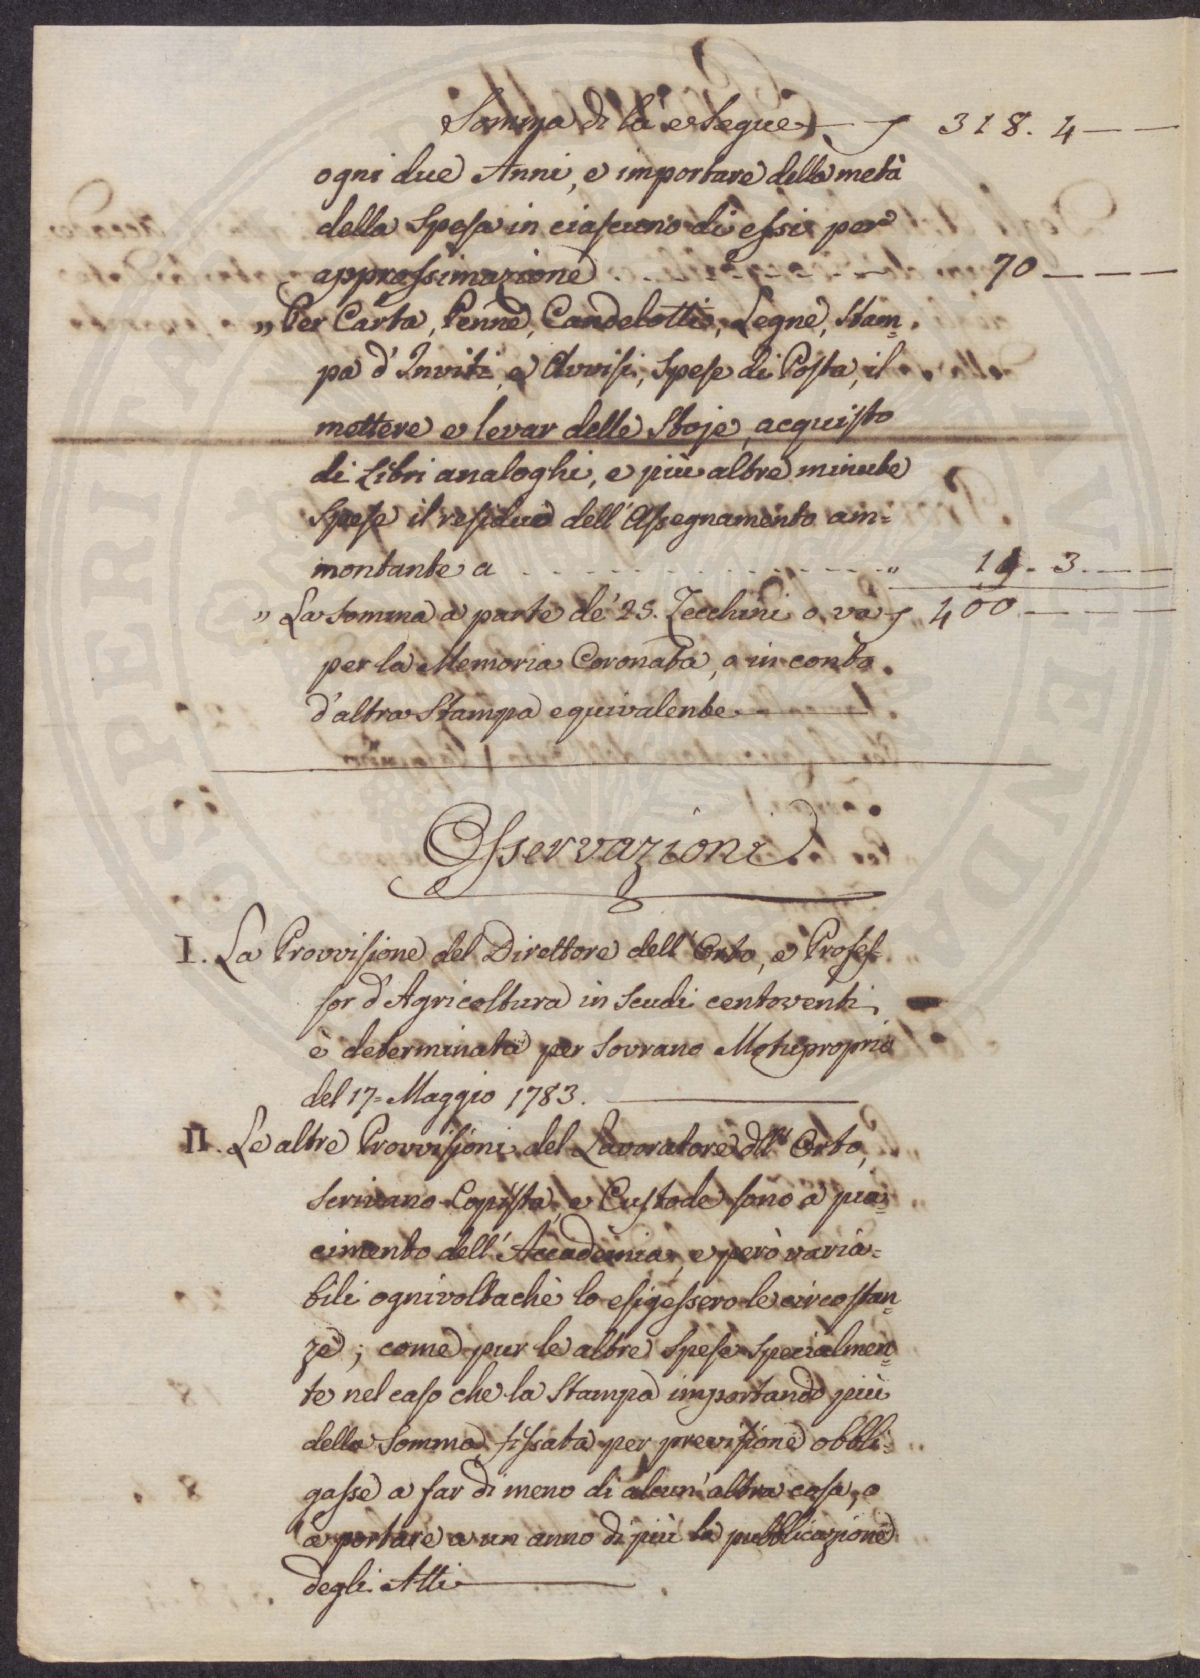 Somma di là e Segue ƒ 318. 4 — —
ogni due Anni, e importare della metà
della Spesa in ciascuno di essi per
approssimazione . . . . . . 70 — — —
„ Per Carta, Penne, Candelotti, Legne, Stam=
pa d'Inviti, e Avvisi, Spese di Posta, il
mettere e levar delle Stoje, acquisto
di Libri analoghi, e più altre minute
Spese il residuo dell'Assegnamento am=
montante a . . . . . . . . „ 1 . 3. — —
„ La Somma a parte de' 25. Zecchini o va ƒ 400. — — —
per la Memoria Coronata, o in conto
d'altra Stampa equivalente
Osservazioni
I. La Provvisione del Direttore dell'Orto, e Profes=
sor d'Agricoltura in Scudi centoventi
è determinata per Sovrano Motuproprio
del 17= Maggio 1783.
II. Le altre Provvisioni del Lavoratore dell'Orto,
Scrivano Copista, e Custode sono a pia=
cimento dell'Accademia, e però varia=
bili ognivoltachè lo esigessero le circostan=
ze; come pur le altre Spese Specialmen=
te nel caso che la Stampa importando più
della Somma fissata per previsione obbli=
gasse a far di meno di alcun'altra cosa, o
a portare a un anno di più la pubblicazione
degli Atti
SOSPERITATI PUBLICAE AUGENDAE